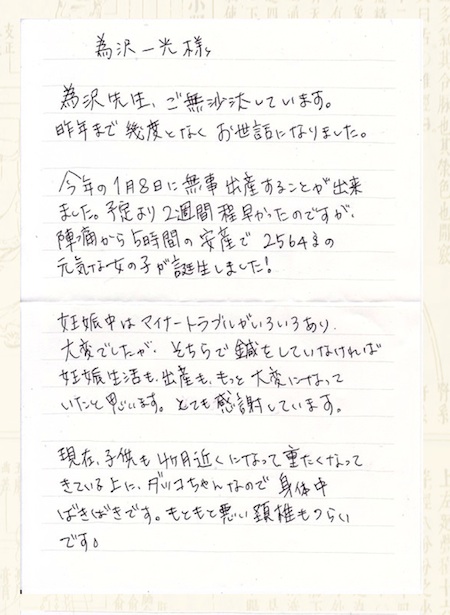 為沢一光様
為沢先生、ご無沙汰しています。
昨年まで幾度となくお世話になりました。
今年の1月8日に無事出産することが出来
ました。予定より2週間程早かったのですが、
陣痛から5時間の安産で2564gの
元気な女の子が誕生しました!
妊娠中はマイナートラブルがいろいろあり
大変でしたが、そちらで鍼をしていなければ
妊娠生活も、出産も、もっと大変になって
いたと思います。とても感謝しています。
現在、子供も4ヶ月近くになって重たくなって
きている上に、ダッコちゃんなので身体中
ばきばきです。もともと悪い頚椎もつらい
です。